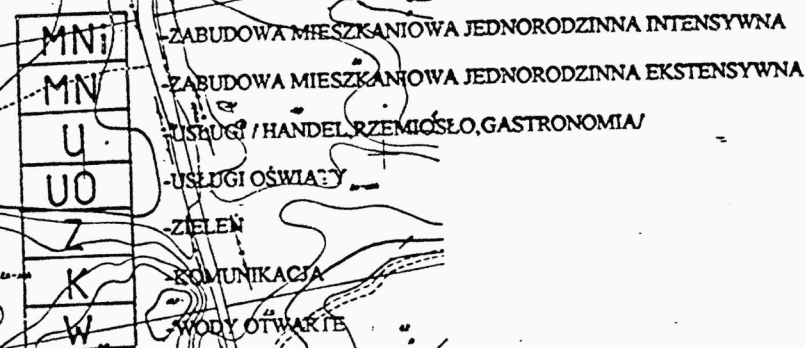 MNi -ZABUDOWA MIESZKANIOWA JEDNORODZINNA INTENSYWNA
MN -ZABUDOWA MIESZKANIOWA JEDNORODZINNA EKSTENSYWNA
U -USŁUGI / HANDEL,RZEMIOSŁO,GASTRONOMIA/
UO -USŁUGI OŚWIATY
Z -ZIELEŃ
K -KOMUNIKACJA
W -WODY OTWARTE